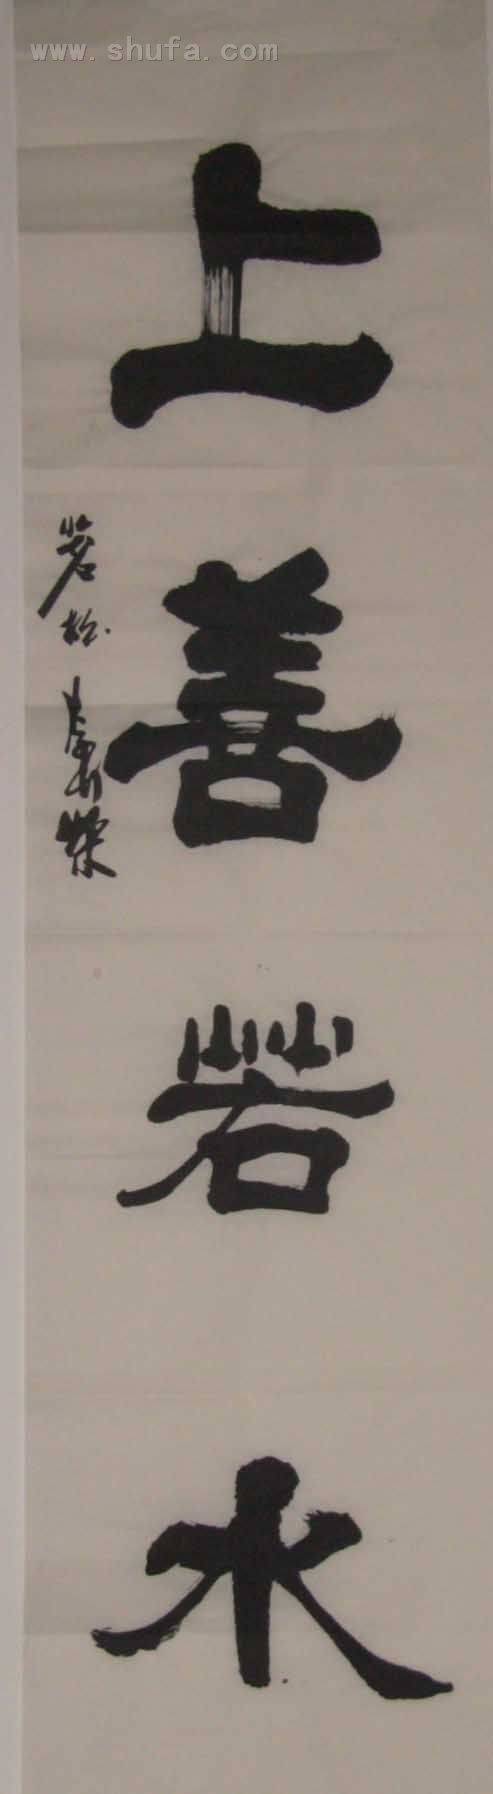 www.shufa.com
上善若水